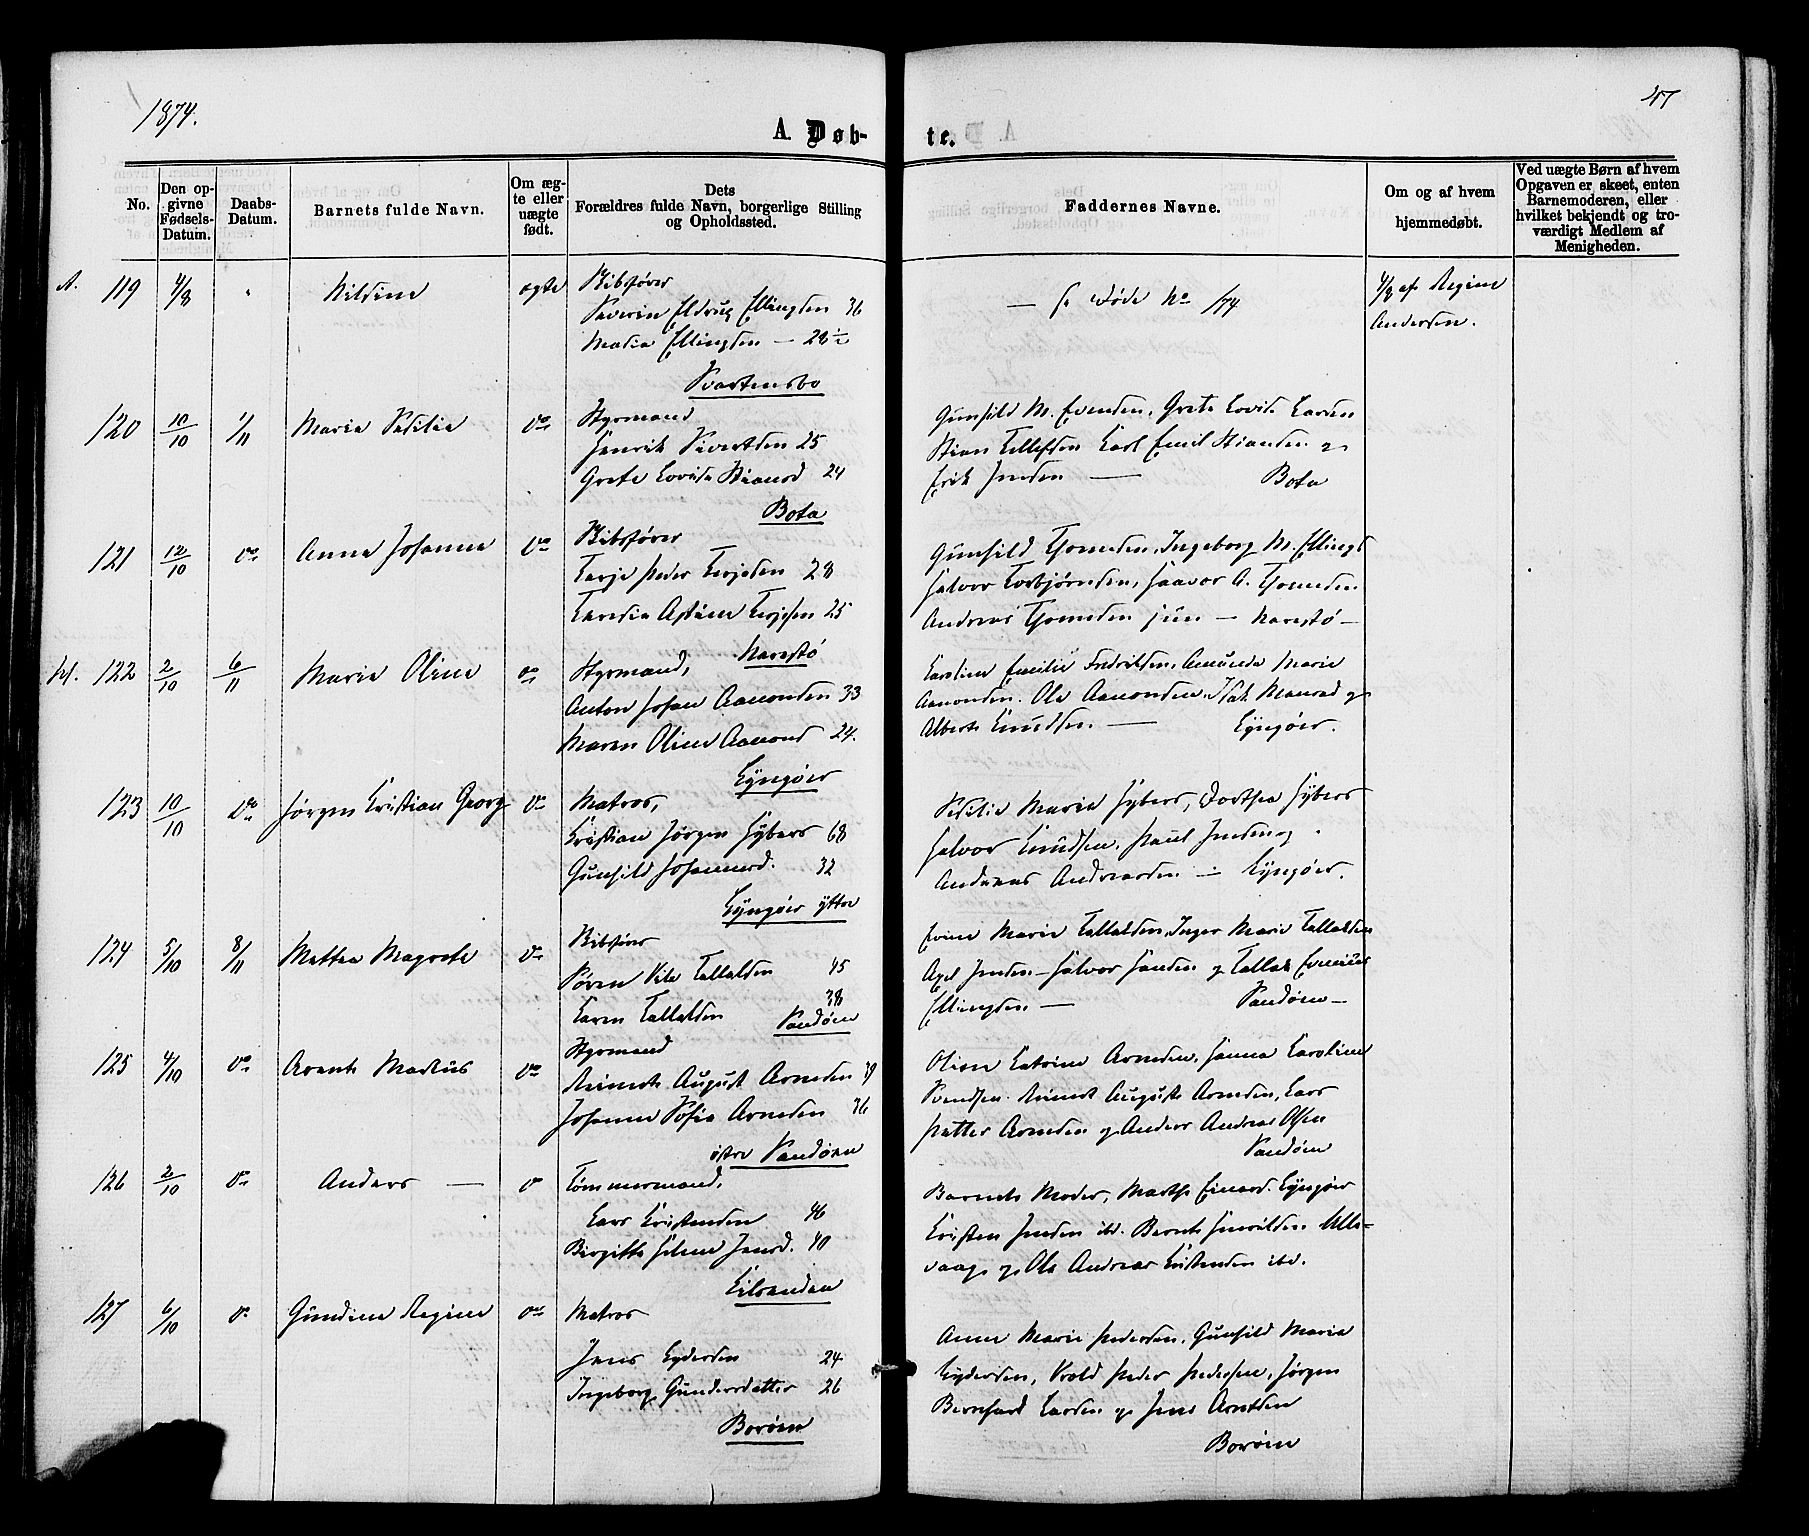 1874.
47
A. Døb-
te.
No.
Den op-
givne
Fødsels-
Datum.
Daabs-
Datum.
Barnets fulde Navn.
Om æg-
te eller
uægte
født.
Dets
Forældres fulde Navn, borgerlige Stilling
og Opholdssted.
Faddernes Navne.
Om og af hvem
hjemmedøbt.
Ved uægte Børn af hvem
Opgaven er skeet, enten
Barnemoderen, eller
hvilket bekjendt og tro-
værdigt Medlem af
Menigheden.
119 4/8 " Hildine ægte Skibsfører
Severin Eldrup Ellingsen 36
Maria Ellingsen — 28½
Svartensbo
— se døde No 174
4/8 af Regine
Andersen.
120 10/10 1/11 Maria Sesilie do Styrmand
Henrik Sivertsen 25
Grete Lovida Stiansd 24
Bota
Gunhild M. Evensen, Grete Lovida Larsen
Stian Tellefsen Carl Emil Stiansen og
Erik Jensen — Bota
121 12/10 do Anna Johanna do Skibsfører
Terje Peder Terjesen 28
Taresia Astine Terjesen 25
Narestø
Gunhild Thomesen, Ingeborg M. Ellings
Halvor Torbjørnsen, Haavor A. Thomesen
Andreas Thomesen jun — Narestø —
122 2/10 6/11 Maria Oline do Styrmand,
Anton Johan Aanonsen 33
Maren Oline Aanons 24.
Lyngøer
Caroline Emilie Fredriksen, Amunda Marie
Aanonsen, Ole Aanonsen, Isak Monrad og
Alberts Knudsen. — Lyngøer.
123 10/10 do Jørgen Kristian Georg do Matros,
Kristian Jørgen Hybers 68
Gunhild Johannesd. 32
Lyngøer ytre
Sesilie Maria Hybers, Dorthea Hybers
Halvor Knudsen, Paul Jensen og
Andreas Andreassen — Lyngøer.
124 5/10 8/11 Mathea Magrete do Skibsfører
Søren Vile Tallaksen 45
Karen Tallaksen 38
Sandøen
Evine Marie Tallaksen, Inger Marie Tallaksen
Axel Jensen — Halvor Hansen og Tallak Evenius
Ellingsen — Sandøen —
125 4/10 do Arent Marius do Styrmand
Reinert August Arnesen 39
Johanne Sofie Arnesen 36
østre Sandøen
Oline Katrine Arnesen, Hanna Caroline
Svendsen, Reinert Auguste Arnesen, Lars
Petter Arnesen og Anders Andreas Olsen
Sandøen
126 2/10 do Anders — do Tømmermand,
Lars Kristensen 46
Birgitte Helene Jensd. 40
Kilsanden
Barnets Moder, Marthe Einard. Lyngøer
Kristen Jensen ibd. Bernt Henriksen Ulle-
vaag og Ole Andreas Kristensen ibd.
127 6/10 do Gundine Regine do Matros
Jens Eydersen 24
Ingeborg Gundersdatter 26
Borøen
Anne Marie Pedersen, Gunhild Marie
Eydersen, Vrold Peder Pedersen, Jørgen
Bernhard Larsen og Jens Arntsen
Borøen